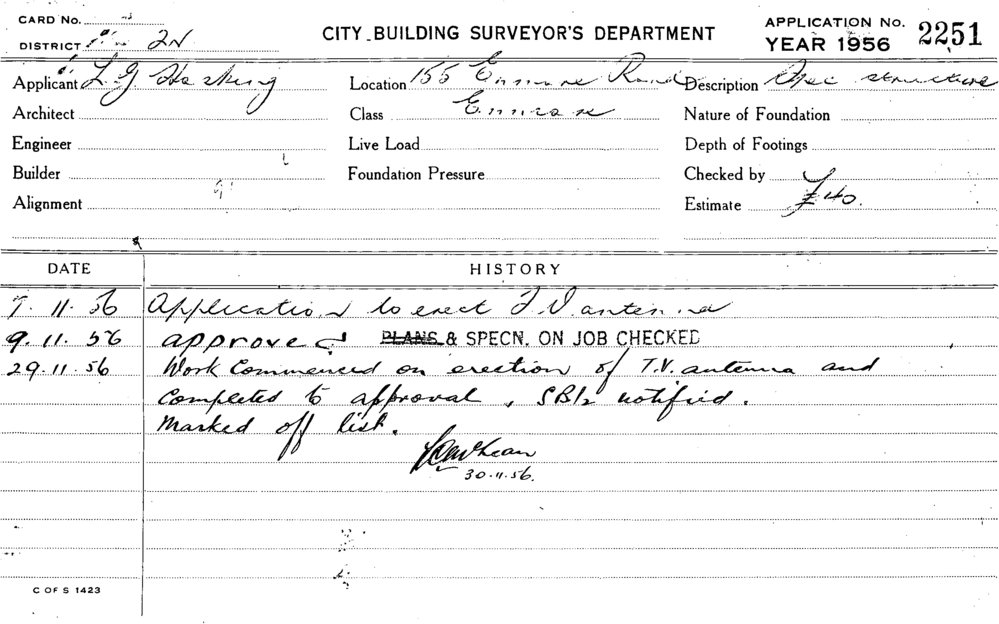 CARD No.
DISTRICT 2N
CITY BUILDING SURVEYOR'S DEPARTMENT
APPLICATION No. 2251
YEAR 1956
Applicant L. G. Hosking Location 155 Enmore Road Description Spec structure
Architect Class Enmore Nature of Foundation
Engineer Live Load Depth of Footings
Builder Foundation Pressure Checked by
Alignment Estimate £40.
DATE HISTORY
7. 11. 56 Application to erect T.V. antenna
9. 11. 56 approved PLANS & SPECN. ON JOB CHECKED
29.11.56 Work Commenced on erection of T.V. antenna and
Completed to approval, SB12 notified.
Marked off list.
30.11.56.
C OF S 1423